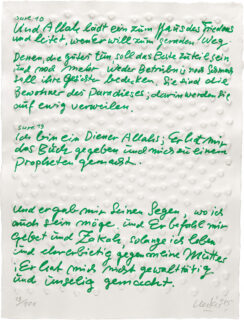 Sure 10
Und Allah lädt ein zum Haus des Friedens
und leitet, wen Er will zum geraden Weg
Denen, die gutes tun, soll das Beste zuteil sein
und noch mehr weder Betrübnis noch Schmach
soll ihre Gesichter bedecken. Sie sind die
Bewohner des Paradieses; darin werden sie
auf ewig verweilen.
Sure 19
Ich bin ein Diener Allahs; Er hat mir
das Buch gegeben und mich zu einem
Propheten gemacht.
Und er gab mir Seinen Segen, wo ich
auch sein möge und Er befahl mir
Gebet und Zakah, solange ich lebe
und ehrerbietig gegen meine Mutter
Er hat mich nicht gewalttätig
und unselig gemacht.